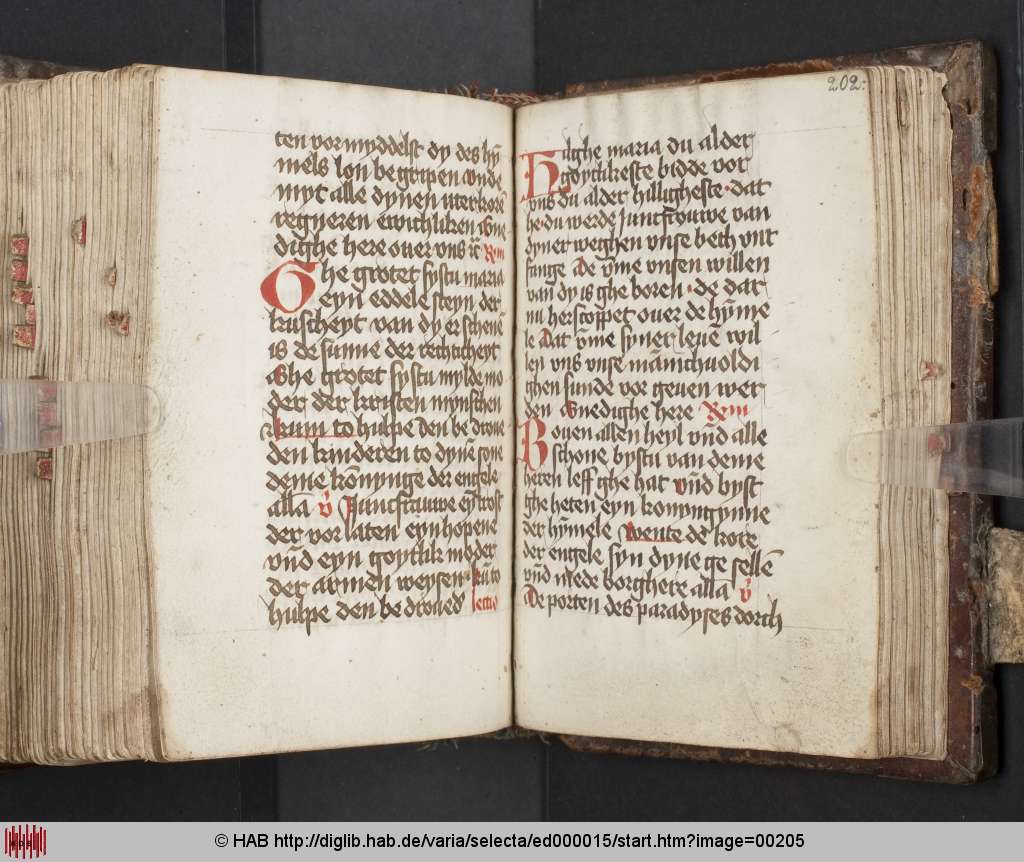 ten vor myddelst dy des hy̅
mels lon be gripen vnde
myt alle dynen vterkore̅
regneren ewichliken Gne
dighe here ouer vns
Ghe grotet systu maria
eyn eddele steyn der
kuscheyt van dy er schene̅
is de sunne der rechticheyt
Ghe grotet systu mylde mo
der der kristen mynschen
kum to hulpe den be droue
den kinderen to dyne̅ sone
deme konynge der engele
alla̅ v̅ Juncfrauwe ey̅ trost
der vor laten eyn hopene
vn̅d eyn goytlik moder
der armen weysen ku̅ to
hulpe den be droued lectio
202:
Hilghe maria du alder
goytlikeste bidde vor
vns du alder hilligheste dat
he du werde Juncfrouwe van
dyner weghen vnse bech vnt
fange De v̅me vnsen willen
van dy is ghe boren de dar
nu herscoppet ouer de hy̅me
le Dat v̅me syner leue̅ wil
len vns vnse ma̅nichuoldi
ghen sunde vor geuen wer
den Gnedighe here
Bouen allen heyl vn̅d alle
schone bystu van deme
heren leff ghe hat vn̅d byst
ghe heten eyn konyngynne
der hy̅mele wente de kore
der engele syn dyne ge selle̅
vn̅d mede borghere alla̅ v̅
De porten des paradyses dorch
© HAB http://diglib.hab.de/varia/selecta/ed000015/start.htm?image=00205